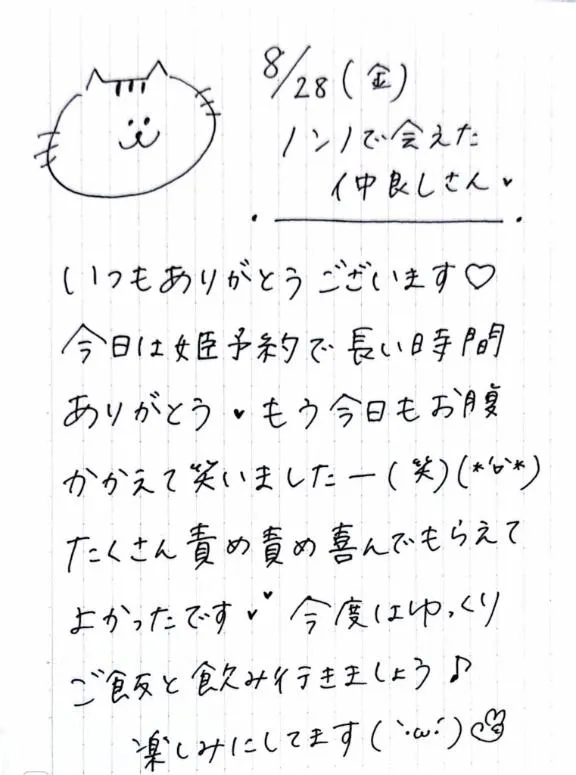 8/28(金)
ノンノで会えた
仲良しさん♥
いつもありがとうございます♡
今日は姫予約で長い時間
ありがとう♥もう今日もお腹
かかえて笑いましたー(笑)(*'ㅂ'*)
たくさん責め責め喜んでもらえて
よかったです♥♥ 今度はゆっくり
ご飯と飲み行きましょう♪
楽しみにしてます(`･ω･´)